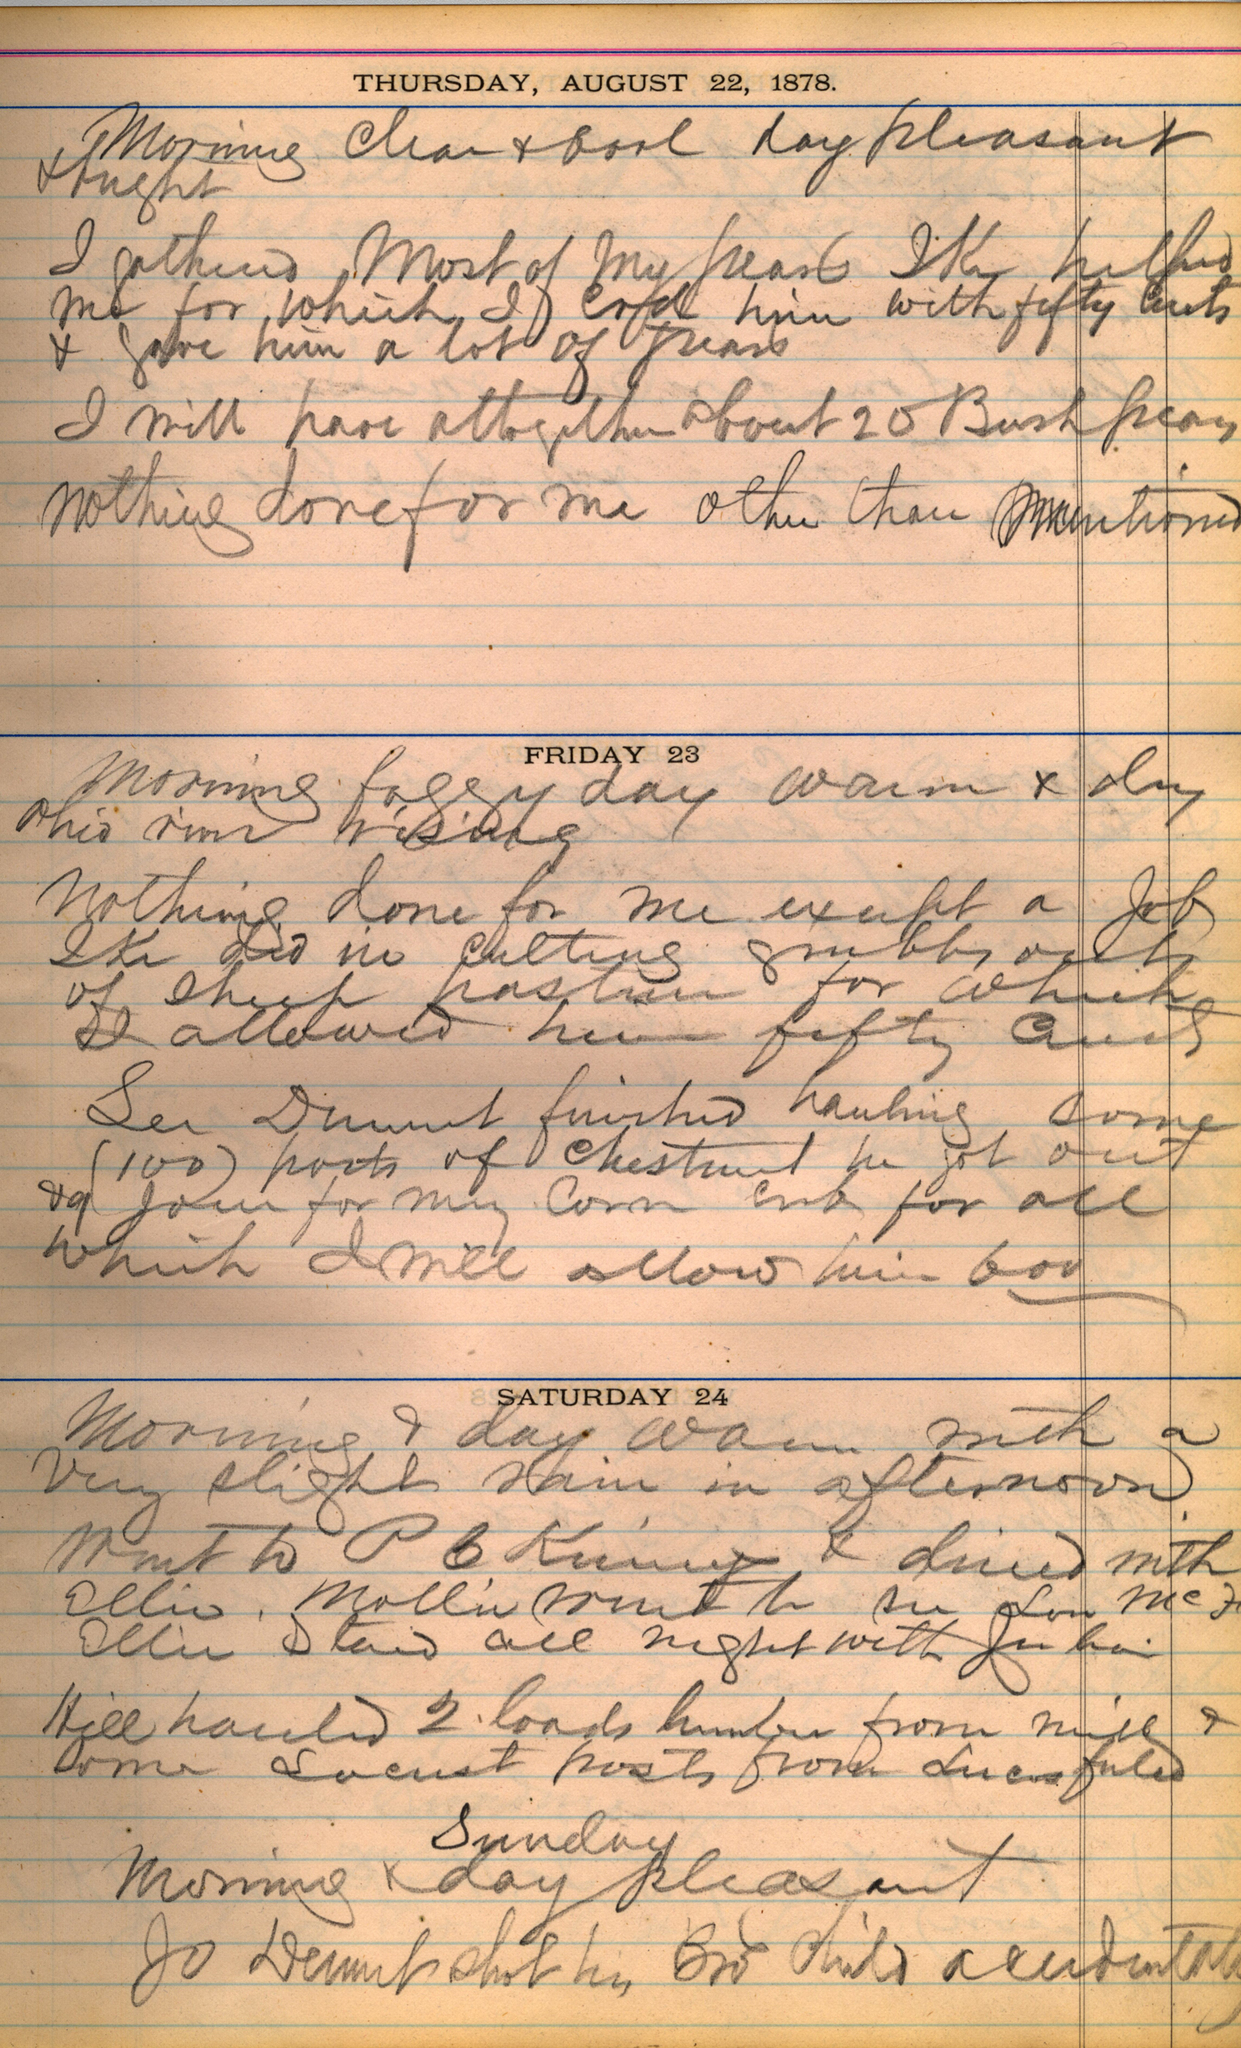 THURSDAY, AUGUST 22, 1878.
Morning Clear & Cool day pleasant
& bright
I gathered Most of My pears Ike helped
me for which I Crd him with fifty Cents
& gave him a lot of pears
I will have altogether about 20 Bush pears
Nothing done for me other than mentioned
FRIDAY 23
Morning foggy day warm & dry
Ohio river rising
Nothing done for me except a Job
Ike did in cutting grubbs out
of sheep pasture for which
I allowed him fifty Cents
Demut finished hauling some
(100) posts of Chestnut he got out
for my Corn Crib for all
which I will allow him 600
SATURDAY 24
Morning & day warm with a
Very slight rain in afternoon
Went to P C Kinney & dined with
Ellie. Mollie went to see Lou Mc
Ellie Staid all night with Julia
Hill hauled 2 loads lumber from mill &
some Locust posts from Lucas field
Sunday
Morning & day pleasant
Jo Demut shot his Bro Child accidentaly